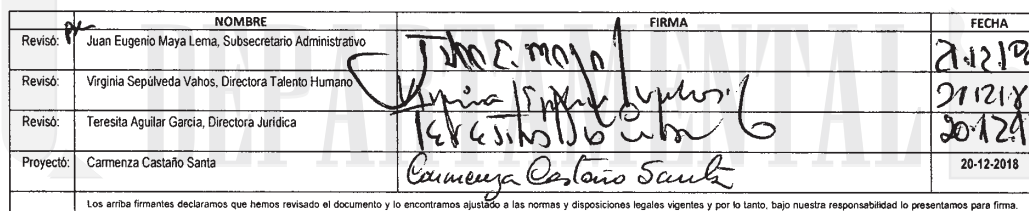 NOMBRE FIRMA FECHA
Revisó: Juan Eugenio Maya Lema, Subsecretario Administrativo Juan E. Maya 21.12.18
Revisó: Virginia Sepúlveda Vahos, Directora Talento Humano Virginia Sepúlveda Vahos 211218
Revisó: Teresita Aguilar Garcia, Directora Jurídica Teresita 20.12.
Proyectó: Carmenza Castaño Santa Carmenza Castaño Santa 20-12-2018
Los arriba firmantes declaramos que hemos revisado el documento y lo encontramos ajustado a las normas y disposiciones legales vigentes y por lo tanto, bajo nuestra responsabilidad lo presentamos para firma.
DEPARTAMENTAL